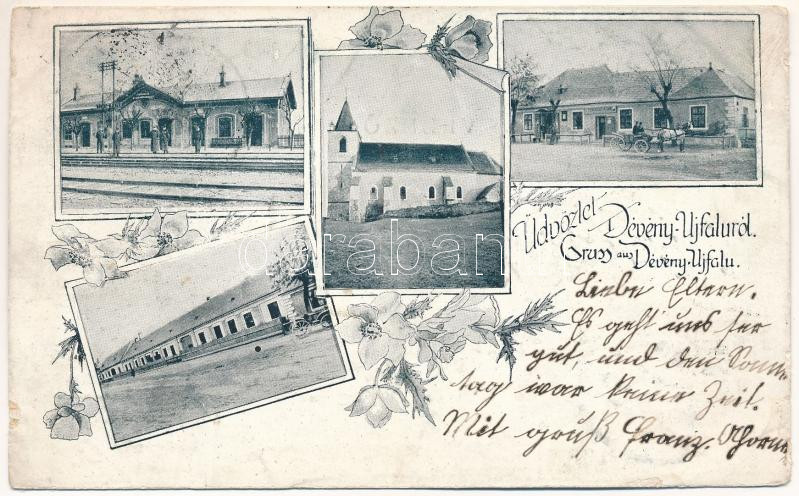 Üdvözlet Dévény-Ujfaluról.
Gruss aus Dévény-Ujfalu.
Liebe Eltern.
Es geht uns ser
gut, und den Sonn
tag war keine Zeit.
Mit gruß Franz.
darabanth